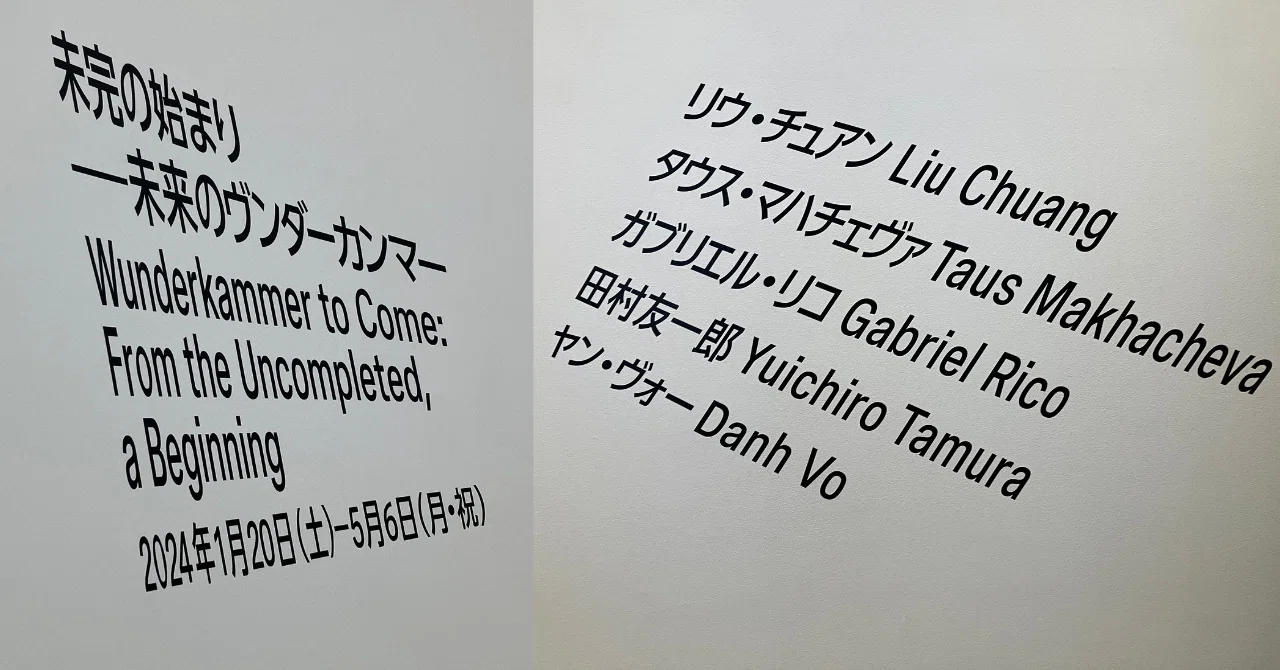 未完の始まり
―未来のヴンダーカンマー
Wunderkammer to Come:
From the Uncompleted,
a Beginning
2024年1月20日(土)–5月6日(月・祝)
リウ・チュアン Liu Chuang
タウス・マハチェヴァ Taus Makhacheva
ガブリエル・リコ Gabriel Rico
田村友一郎 Yuichiro Tamura
ヤン・ヴォー Danh Vo